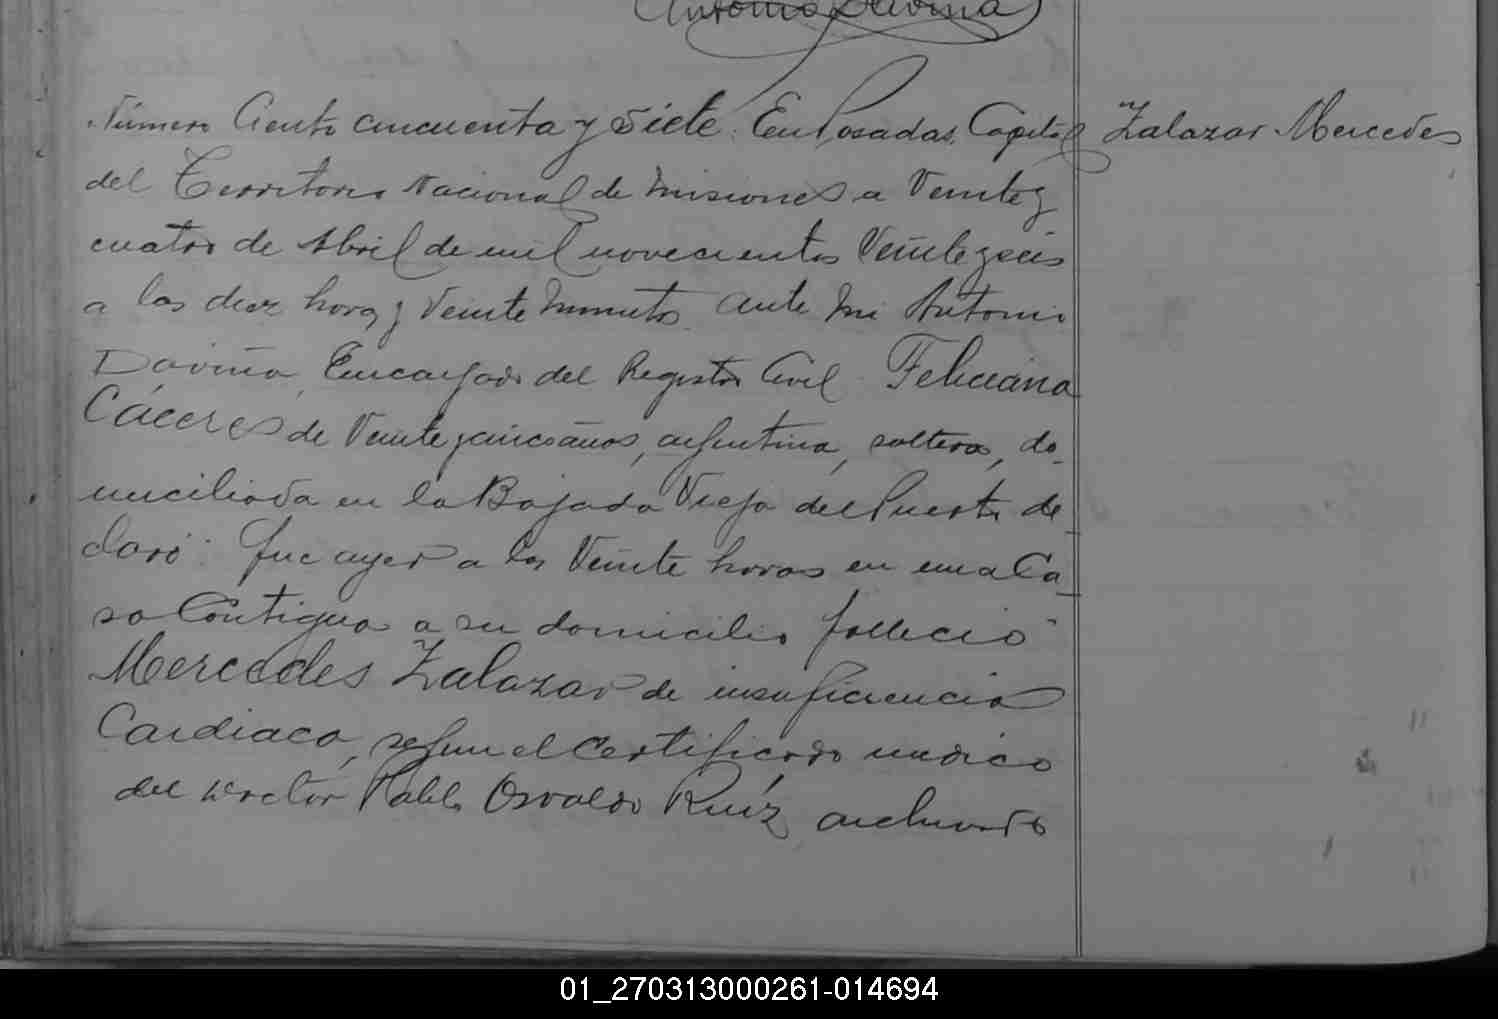 Antonio Daviña
Número Ciento cincuenta y Siete. En Posadas, Capital
Zalazar Mercedes
del Territorio Nacional de Misiones a Veinte y
cuatro de Abril de mil novecientos Veinte y seis
a las diez horas y Veinte minutos ante mi Antonio
Daviña Encargado del Registro Civil Feliciana
Cáceres de Veinte y cinco años, argentina, soltera, do
miciliada en la Bajada Vieja del Puerto de
claró: Que ayer a las Veinte horas en una Ca
sa Contigua a su domicilio falleció
Mercedes Zalazar de insuficiencia
Cardiaca, segun el Certificado médico
del doctor Pablo Osvaldo Ruíz, archivado
01_270313000261-014694